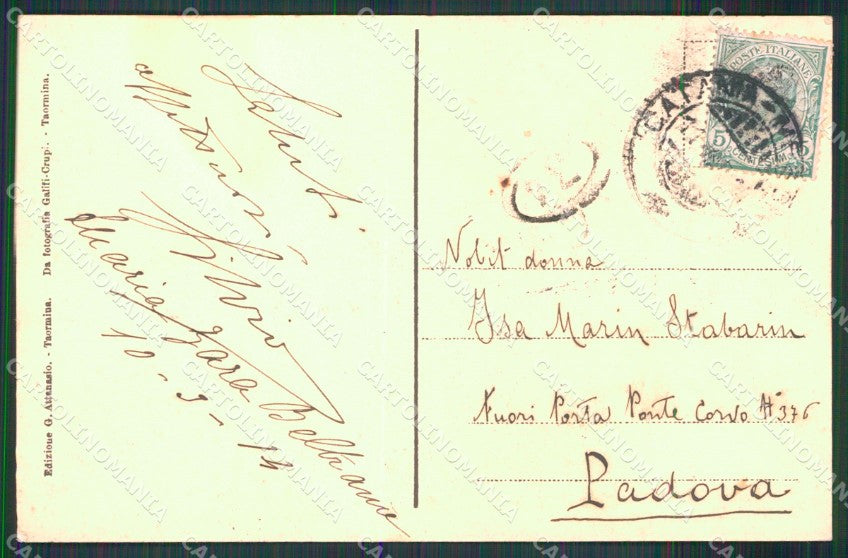 Saluti
affettuosi
Silvio
Maria Zara Beltrame
10-3-14
Edizione G. Attanasio. - Taormina. Da fotografia Galifi-Crupi. - Taormina.
POSTE ITALIANE
5 CENTESIMI 5
CATANIA-M
Nobil donna
Isa Marin Stabarin
Fuori Porta Ponte Corvo N° 376
Padova
CARTOLINOMANIA